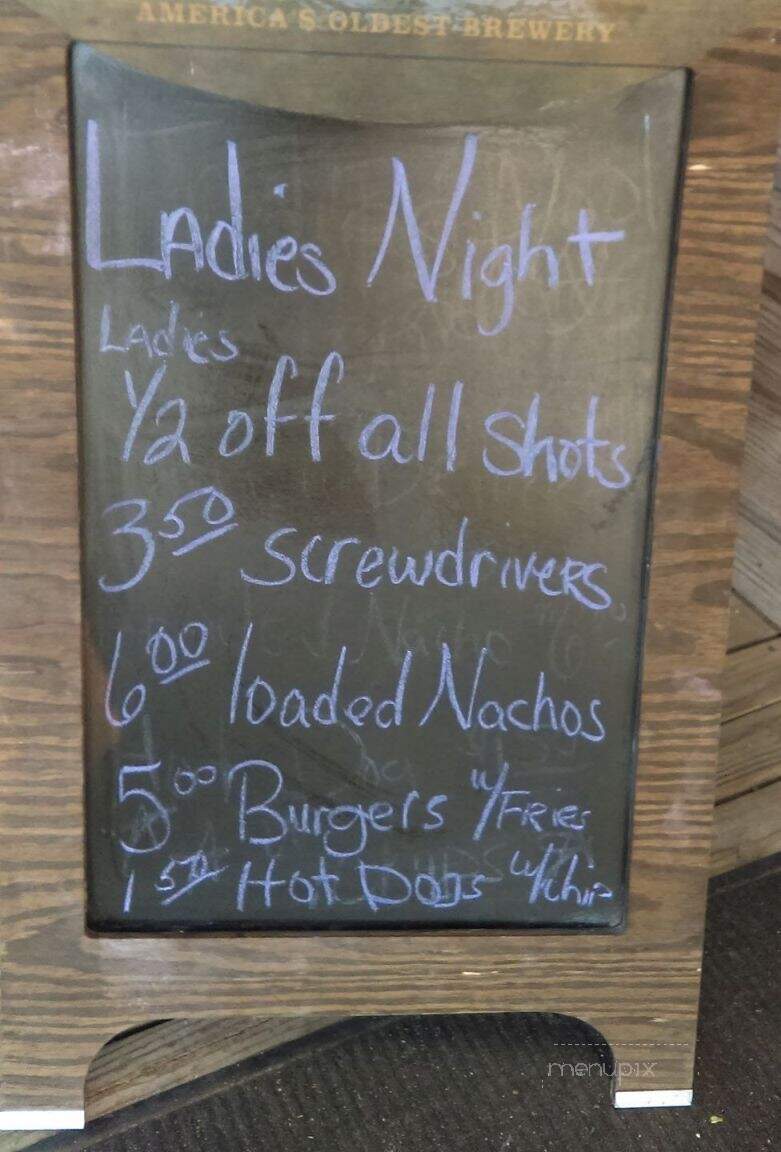 AMERICA'S OLDEST BREWERY
Ladies Night
Ladies
1/2 off all shots
3.50 screwdrivers
6.00 loaded Nachos
5.00 Burgers w/Fries
1.50 Hot Dogs w/chip
menupix